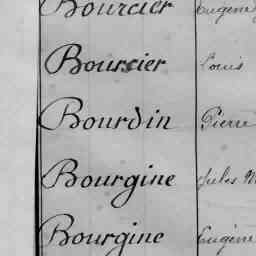 Bourcier Eugène
Bourcier Louis
Bourdin Pierre
Bourgine Jules
Bourgine Eugène